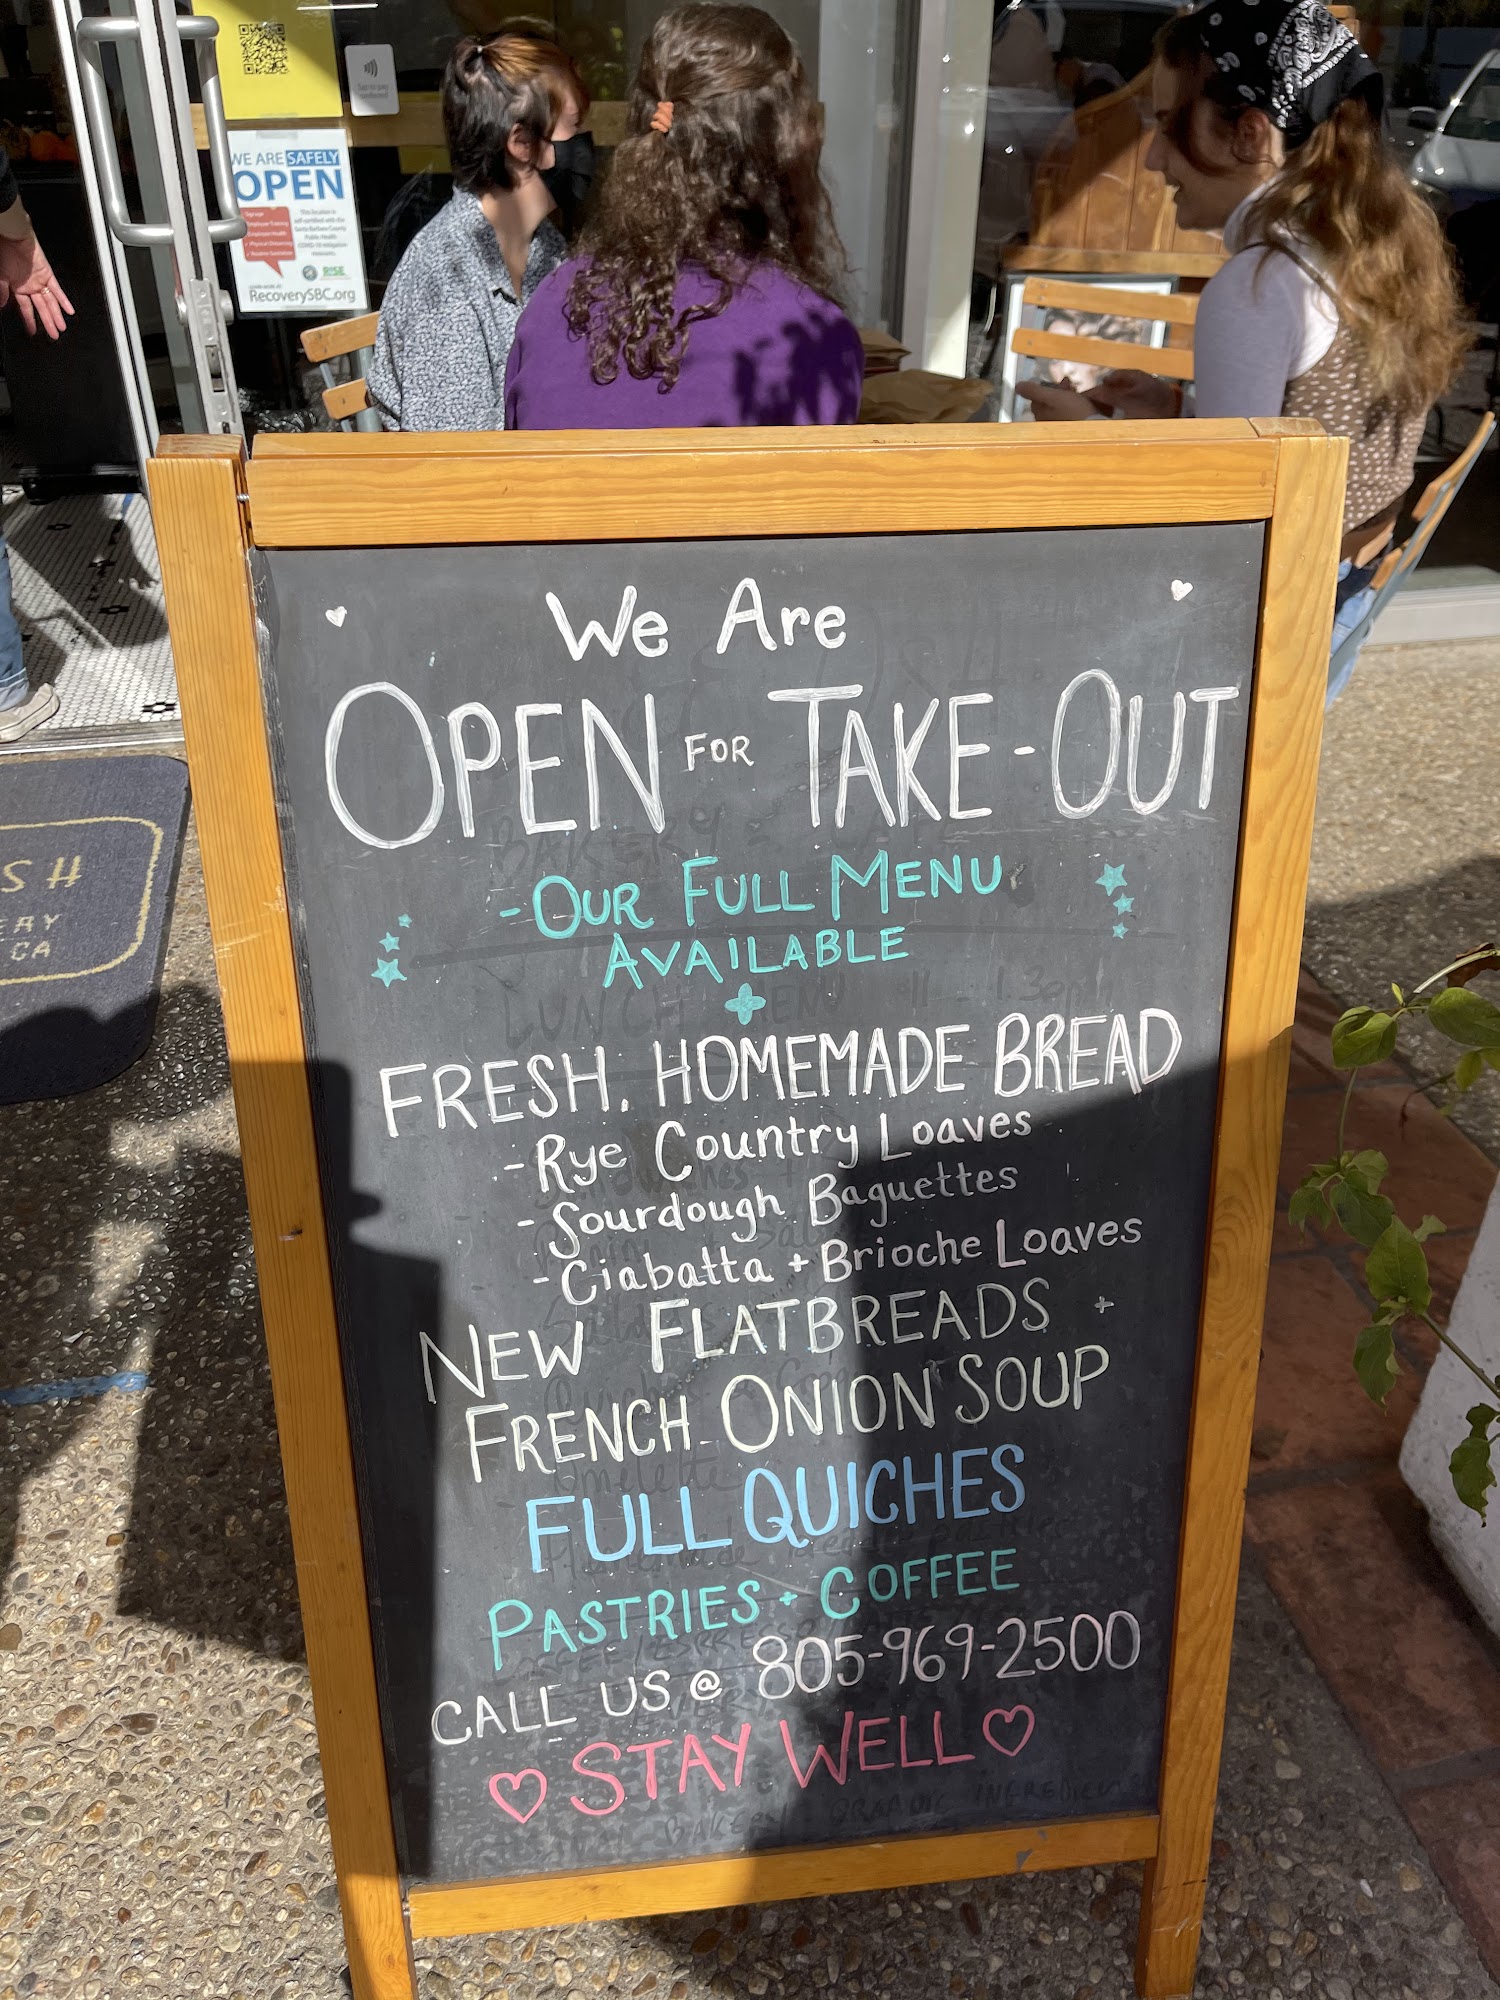 WE ARE SAFELY
OPEN
RISE
RecoverySBC.org
SH
ERY
CA
We Are
OPEN FOR TAKE-OUT
- OUR FULL MENU
AVAILABLE
+
FRESH, HOMEMADE BREAD
- Rye Country Loaves
- Sourdough Baguettes
- Ciabatta + Brioche Loaves
NEW FLATBREADS +
FRENCH ONION SOUP
FULL QUICHES
PASTRIES + COFFEE
CALL US @ 805-969-2500
♡ STAY WELL ♡